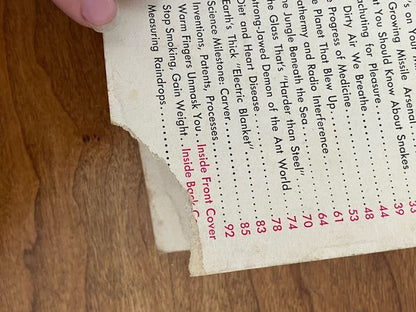 You
Growing Missile Arsenal
at You Should Know About Snakes 3
achuting for Pleasure 39
Dirty Air We Breathe 44
Progress of Medicine 48
Planet That Blew Up 53
athermy and Radio Interference 61
he Jungle Beneath the Sea 64
the Glass That's "Harder than Steel" 70
Strong-Jawed Demon of the Ant World 74
Diet and Heart Disease 78
Earth's Thick "Electric Blanket" 83
Science Milestone: Carver 85
Inventions, Patents, Processes 92
Warm Fingers Unmask You..Inside Front Cover
Stop Smoking, Gain Weight.Inside Back C
Measuring Raindrops